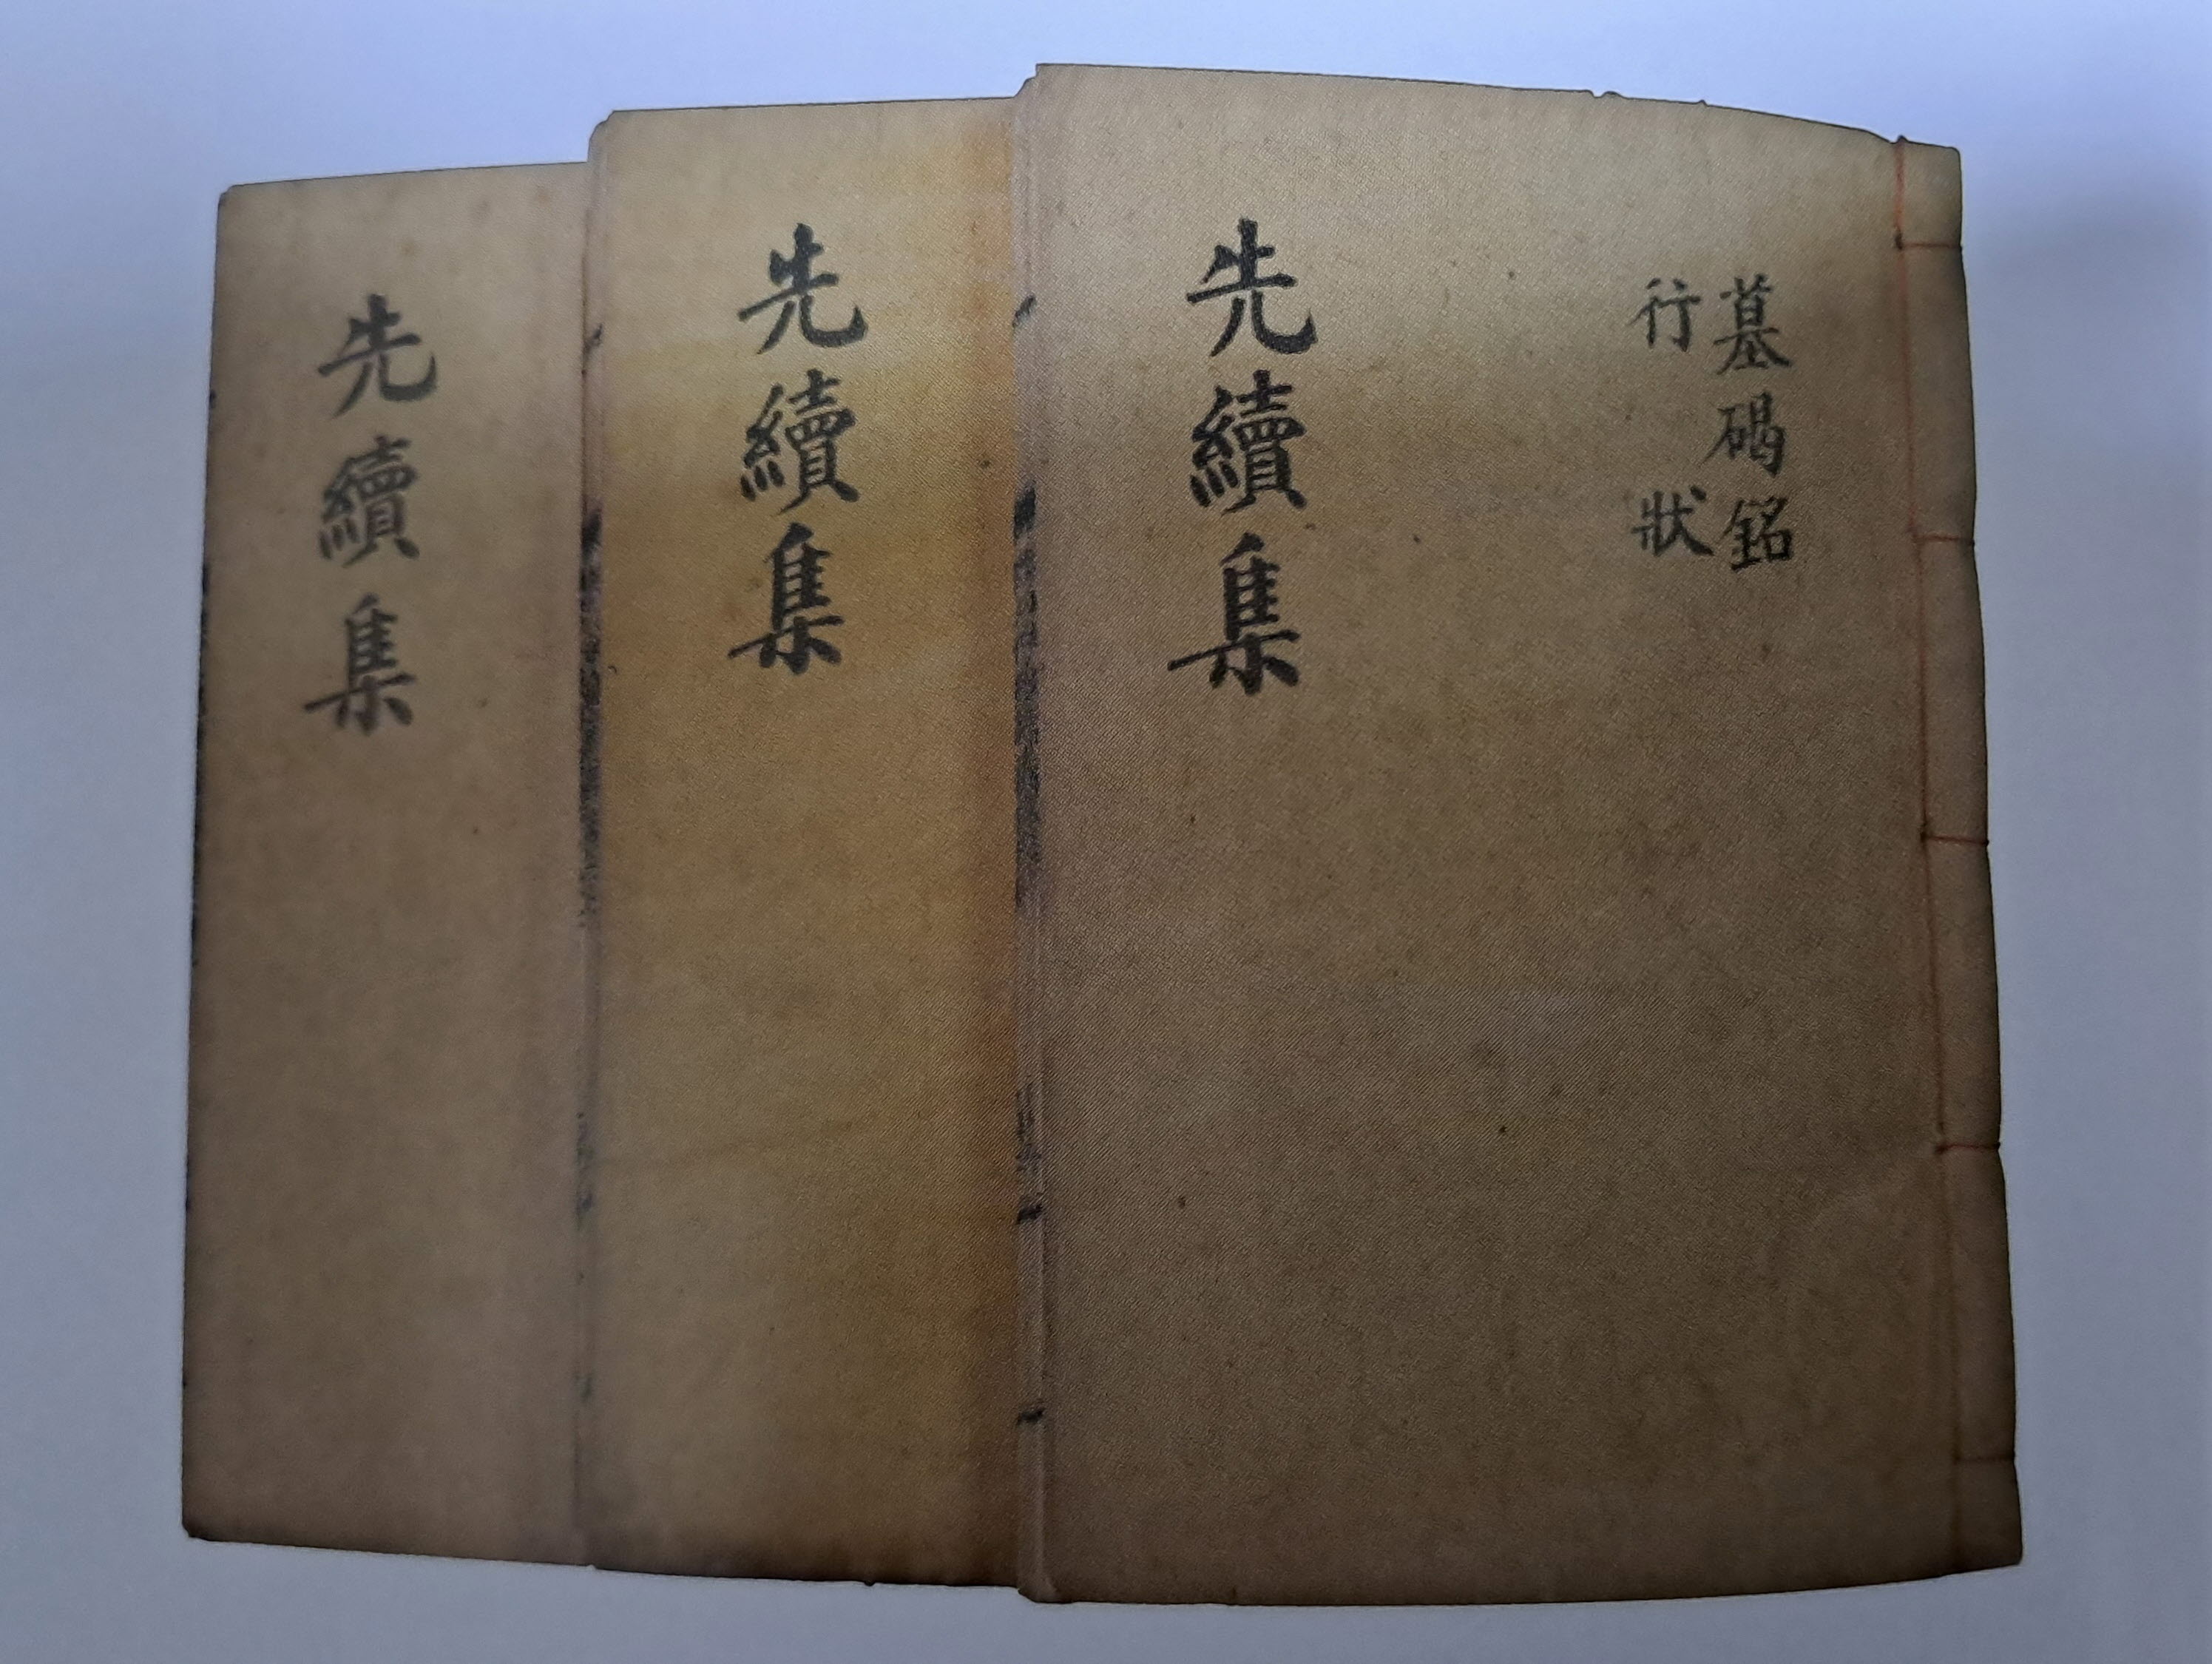 墓碣銘
行狀
先續集
先續集
先續集